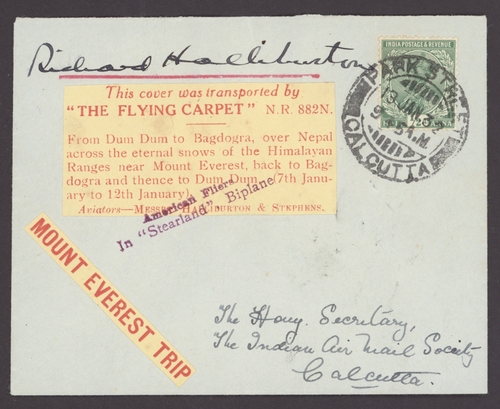 Richard Halliburton
INDIA POSTAGE & REVENUE
PARK STREET
13 JAN
CALCUTTA
This cover was transported by
"THE FLYING CARPET" N.R. 882N.
From Dum Dum to Bagdogra, over Nepal
across the eternal snows of the Himalayan
Ranges near Mount Everest, back to Bag-
dogra and thence to Dum Dum (7th Janu-
ary to 12th January).
Aviators—Messrs HALLIBURTON & STEPHENS.
American Fliers
In "Stearland" Biplane
MOUNT EVEREST TRIP
The Hony. Secretary,
The Indian Air Mail Society
Calcutta.